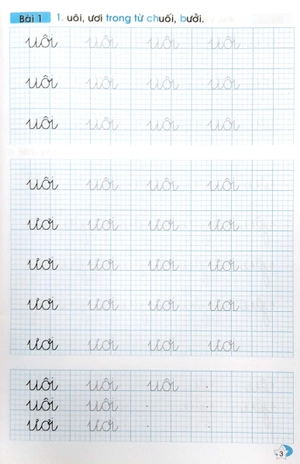 Bài 1 1. uôi, ươi trong từ chuối, bưởi.
uôi uôi uôi uôi
uôi uôi uôi uôi
uôi uôi uôi uôi
uôi uôi uôi uôi
ươi ươi ươi ươi
ươi ươi ươi ươi
ươi ươi ươi ươi
ươi ươi ươi ươi
uôi uôi uôi
uôi uôi
ươi ươi
3